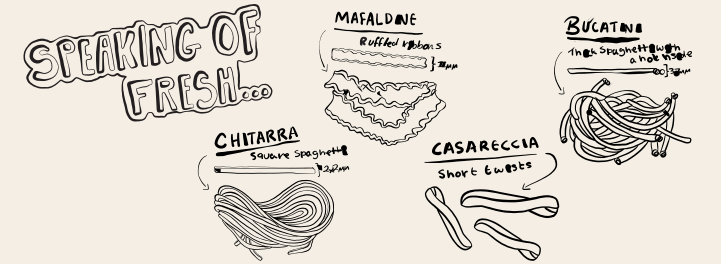 SPEAKING OF
FRESH...
MAFALDINE
Ruffled ribbons
BUCATINI
Thick Spaghetti with
a hole inside
CHITARRA
Square Spaghetti
CASARECCIA
Short twists